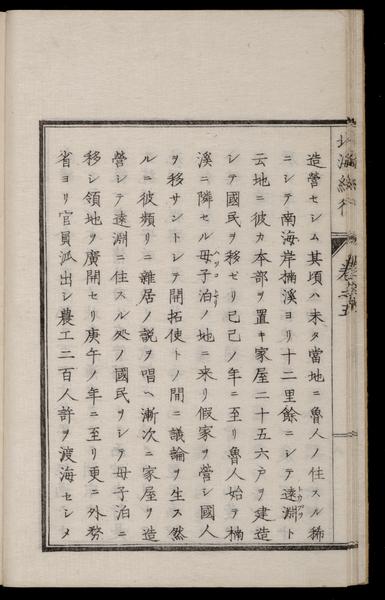 造營セシム其頃ハ未タ當地ニ魯人ノ住スル稀
ニシテ南海岸楠溪ヨリ十二里餘ニシテ遠淵ト
云地ニ彼カ本部ヲ置キ家屋二十五六戸ヲ建造
シテ國民ヲ移セリ己巳ノ年ニ至リ魯人始テ楠
溪ニ隣セル母子泊ノ地ニ来リ假家ヲ營シ國人
ヲ移サントシテ開拓使トノ間ニ議論ヲ生ス然
ルニ彼頻リニ離居ノ説ヲ唱ヘ漸次ニ家屋ヲ造
營シテ遠淵ニ住スル処ノ國民ヲシテ母子泊ニ
移シ領地ヲ廣開セリ庚午ノ年ニ至リ更ニ外務
省ヨリ官員派出シ農工二百人許ヲ渡海セシメ